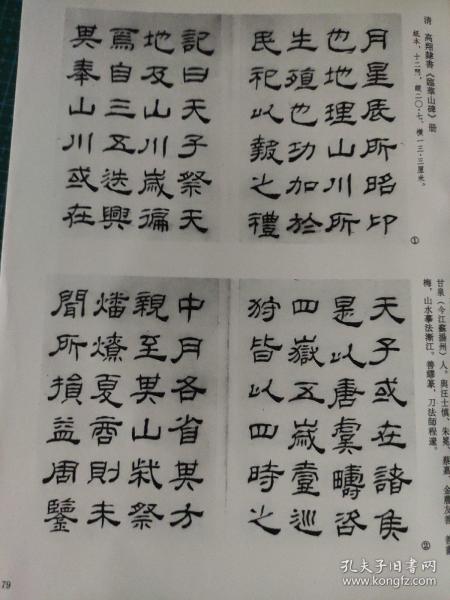 清 高翔隸書《臨華山碑》册
紙本,十二開,縱二〇·七、横一三·三厘米。
月星辰所昭卬
也地理山川所
生殖也功加於
民祀以報之禮
記曰天子祭天
地及山川歲徧
焉自三五迭興
其奉山川或在
①
甘泉(今江蘇揚州)人。與汪士慎、朱冕、蔡嘉、金農友善
梅,山水摹法漸江。善繆篆,刀法師程邃。
天子或在諸侯
是以唐虞疇咨
四嶽五歲壹巡
狩皆以四時之
中月各省其方
親至其山柴祭
燔燎夏商則未
聞所損益周鑒
②
79
孔夫子旧书网
www.kongfz.com